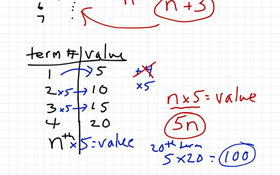 6
7
n
n+3
term # value
1 5 +4
×5
2 ×5 → 10
3 ×5 → 15
4 20
nth ×5 = value
n × 5 = value
5n
20th term
5 × 20 = 100